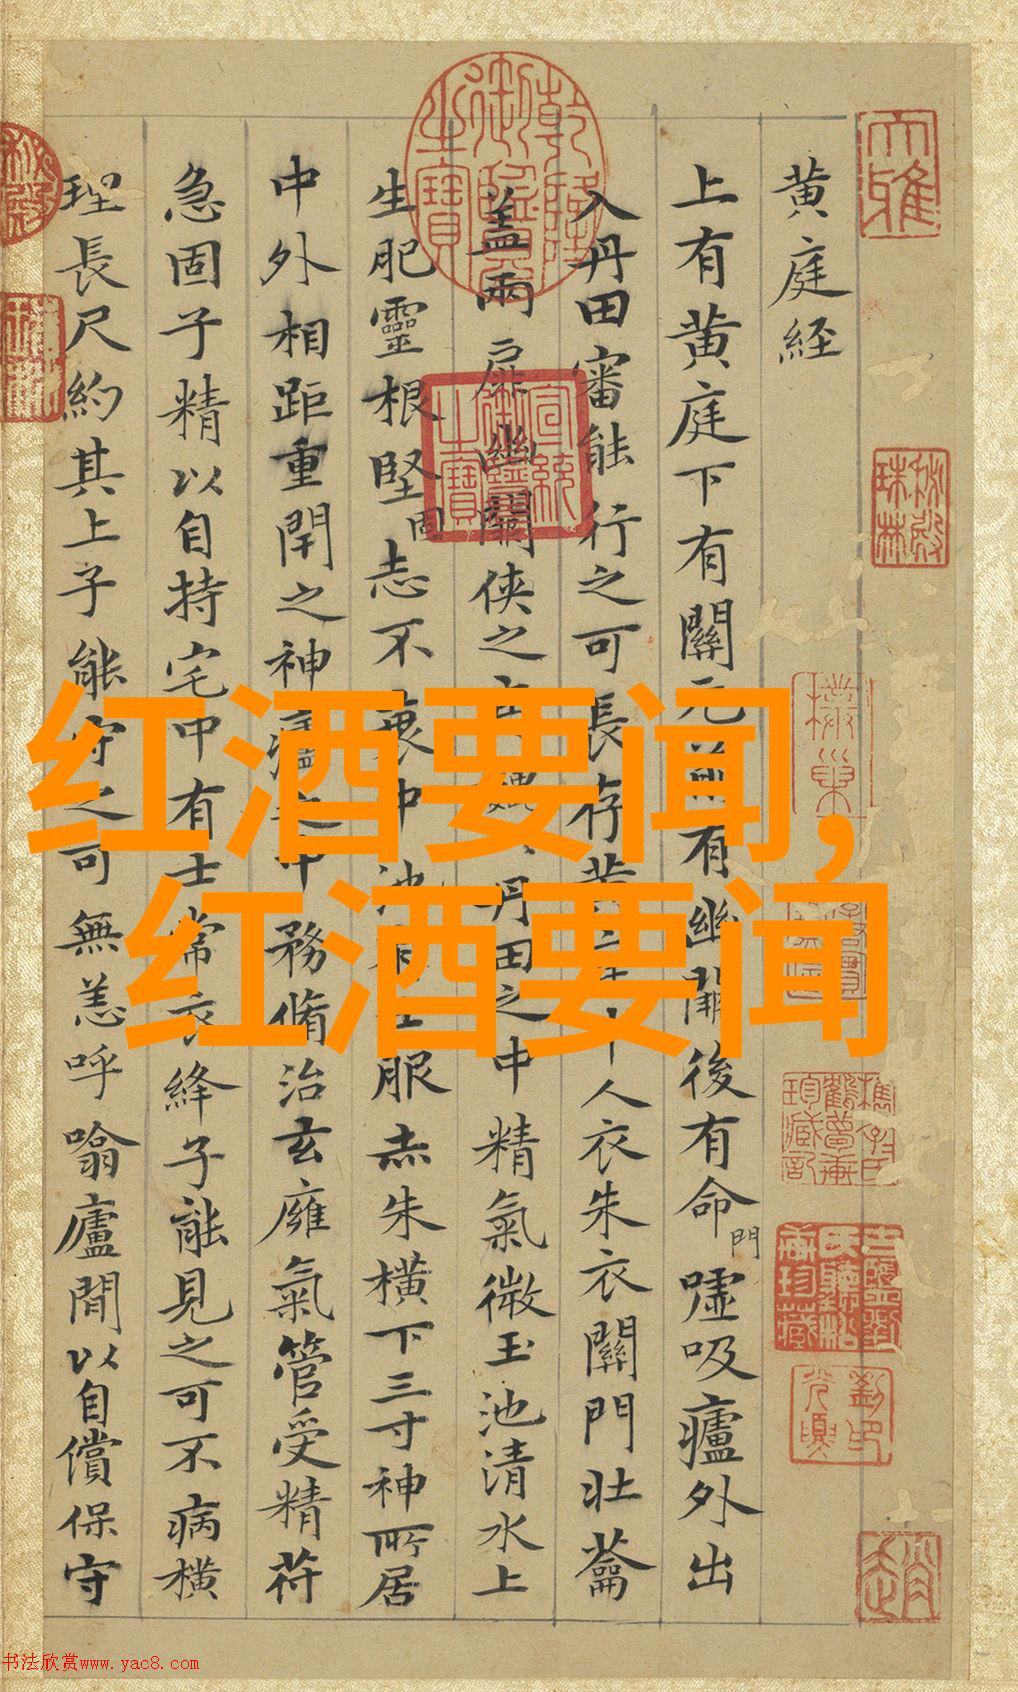 黄庭経
上有黄庭下有關元前有幽闕後有命門嘘吸廬外出
入丹田審能行之可長存黄庭中人衣朱衣關門壮蘥
盖兩扉幽關侠之丹田之中精氣微玉池清水上
生肥靈根堅固志不衰中池有士服赤朱横下三寸神所居
中外相距重閈之神廬之中務脩治玄廱氣管受精苻
急固子精以自持宅中有士常衣絳子能見之可不病横
理長尺約其上子能守之可無恙呼噏廬間以自償保守
红酒要闻,
红酒要闻
大雅
宣統御覽之寶
乾隆御覽之寶
书法欣赏www.yac8.com